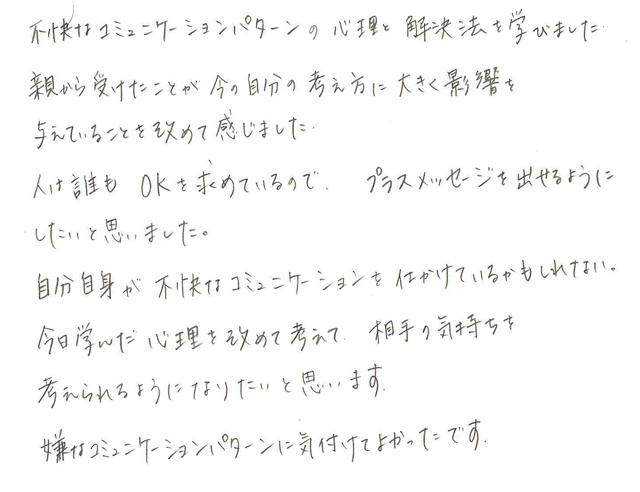 不快なコミュニケーションパターンの心理と解決法を学びました.
親から受けたことが今の自分の考え方に大きく影響を
与えていることを改めて感じました.
人は誰も OKを求めているので、プラスメッセージを出せるように
したいと思いました。
自分自身が不快なコミュニケーションを仕かけているかもしれない。
今日学んだ心理を改めて考えて、相手の気持ちを
考えられるようになりたいと思います.
嫌なコミュニケーションパターンに気付けてよかったです.